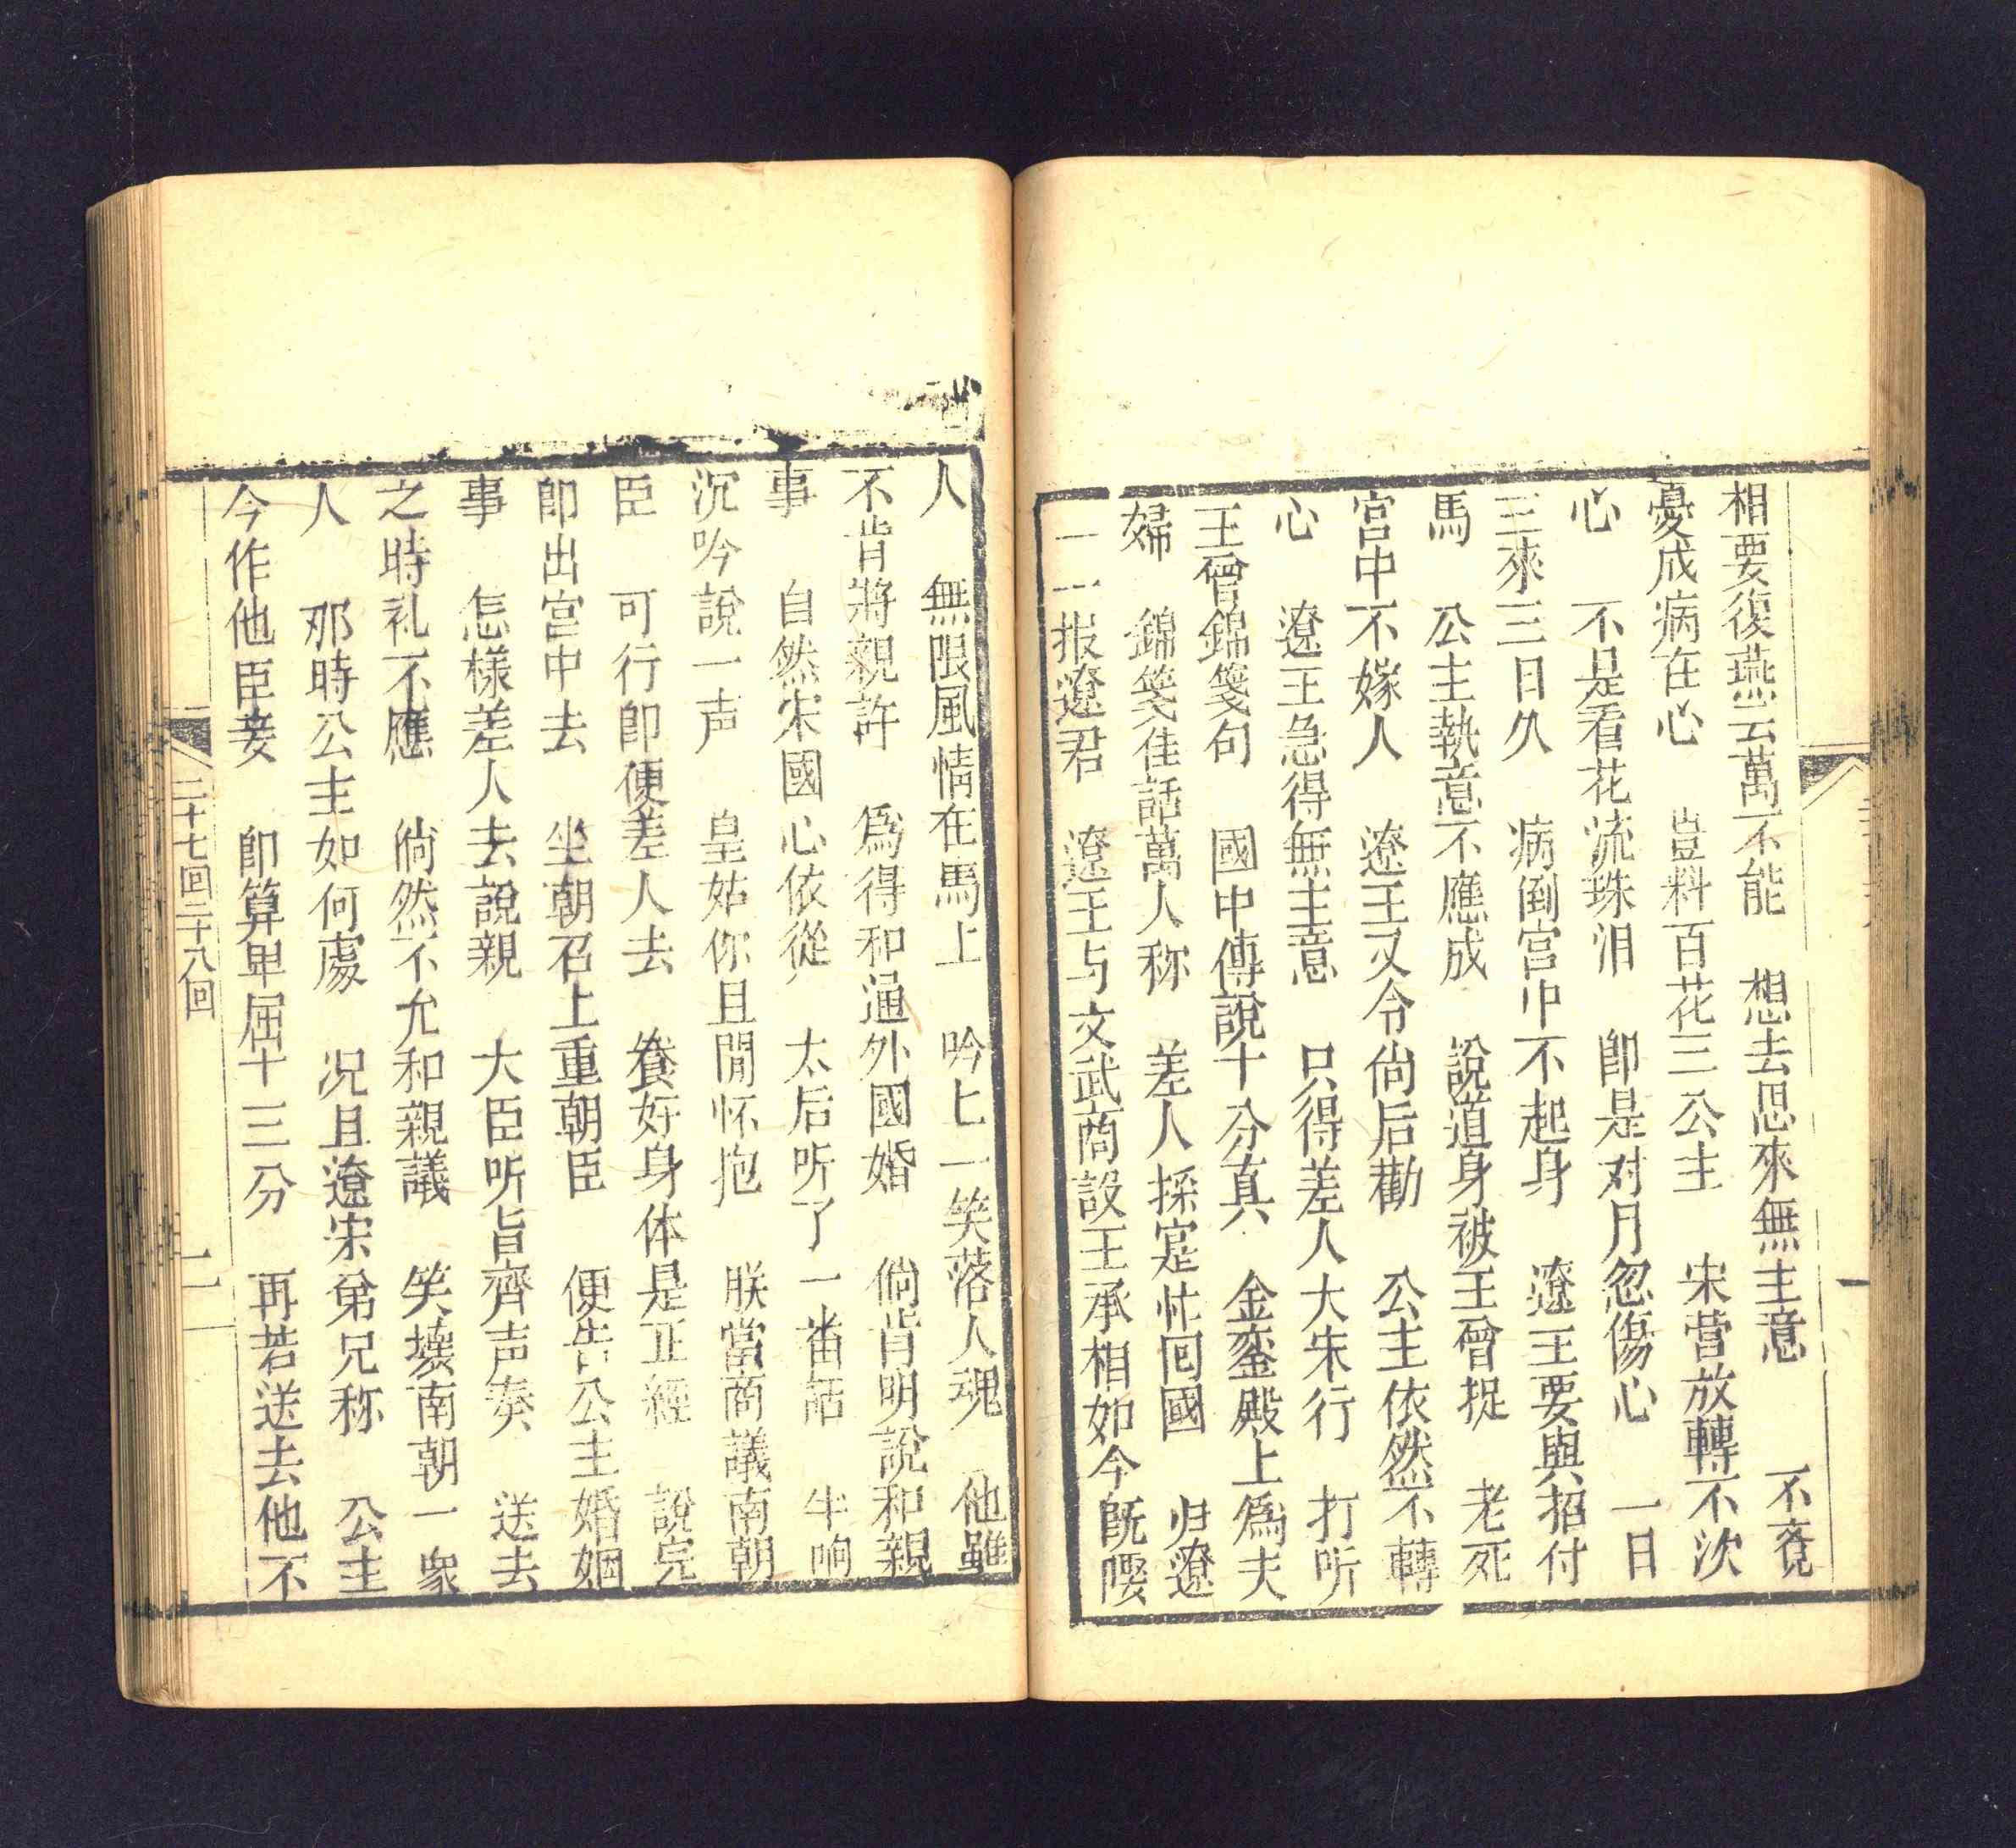 相要復燕云萬不能　想去思來無主意　不覔
憂成病在心　豈料百花三公主　宋营放轉不次
心　不是看花流珠泪　卽是对月忽傷心　一日
三來三日久　病倒宫中不起身　遼王要與招付
馬　公主執意不應成　說道身被王曾捉　老死
宫中不嫁人　遼王又令尙后勸　公主依然不轉
心　遼王急得無主意　只得差人大宋行　打听
王曾錦箋句　國中傳說十分真　金鑾殿上爲夫
婦　錦箋佳話萬人称　差人採寔忙回國　归遼
一一报遼君　遼王与文武商設王承相如今旣嘤
人　無限風情在馬上　吟匕一笑落人魂　他雖
不肯將親許　爲得和通外國婚　倘肯明說和親
事　自然宋國心依從　太后听了一畨話　半晌
沉吟說一声　皇姑你且閒怀抱　朕當商議南朝
臣　可行卽便差人去　養好身体是正經　說完
卽出宫中去　坐朝召上重朝臣　便告公主婚姻
事　怎樣差人去說親　大臣听旨齊声奏　送去
之時礼不應　倘然不允和親議　笑壞南朝一衆
人　那時公主如何處　况且遼宋弟兄称　公主
今作他臣妾　卽算卑屈十三分　再若送去他不
二十七回二十八回
二